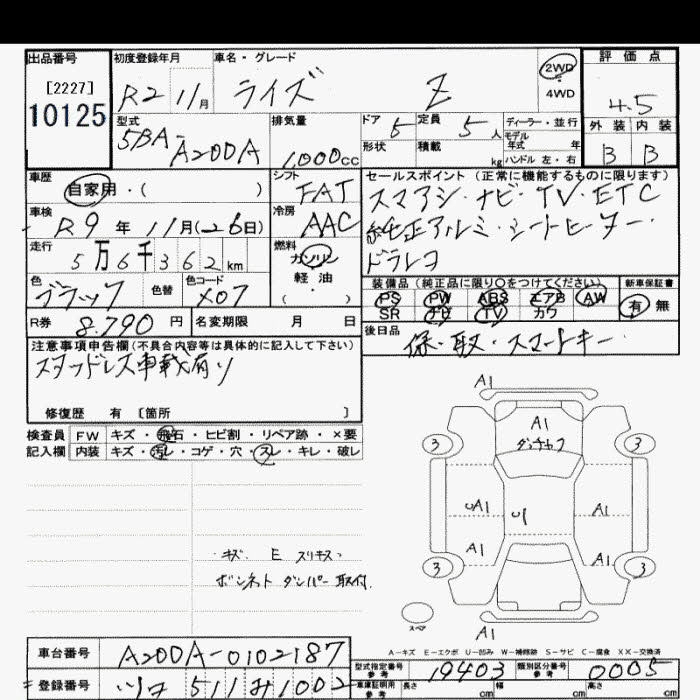 出品番号 初度登録年月 車名・グレード 評価点
[2227]
10125
R2 11月 ライズ Z
2WD
4WD
4.5
型式 排気量 ドア 5 定員 5人 ディーラー・並行
5BA-A200A 1,000cc
形状 積載 kg モデル年式 年 ハンドル 左・右
外装 内装
B B
車歴 自家用・( )
シフト FAT
セールスポイント(正常に機能するものに限ります)
スマアシ・ナビ・TV・ETC
純正アルミ・シートヒーター・
ドラレコ
車検 R9年 11月(26日)
冷房 AAC
走行 5万6千362km
燃料 ガソリン
軽油
( )
色 ブラック 色替 色コード X07
装備品(純正品に限り〇をつけてください) 新車保証書
PS PW ABS エアB AW 有 無
SR ナビ TV カワ
R券 8,790円 名変期限 月 日
後日品 保・取・スマートキー
注意事項申告欄(不具合内容等は具体的に記入して下さい)
スタッドレス車載有り
修復歴 有 [箇所 ]
検査員 FW キズ・飛石・ヒビ割・リペア跡・×要
記入欄 内装 キズ・汚レ・コゲ・穴・スレ・キレ・破レ
キズ E スリキズ
ボンネット ダンパー 取付.
A1
A1
3 3
UA1 U1 A1
A1 A1
3 3
スペア
A1
A−キズ E−エクボ U−凹み W−補修跡 S−サビ C−腐食 XX−交換済
車台番号 A200A-0102187
型式指定番号 参考 19403 類別区分番号 参考 0005
登録番号 511 み 1002
車庫証明用 参考 長さ cm 幅 cm 高さ cm